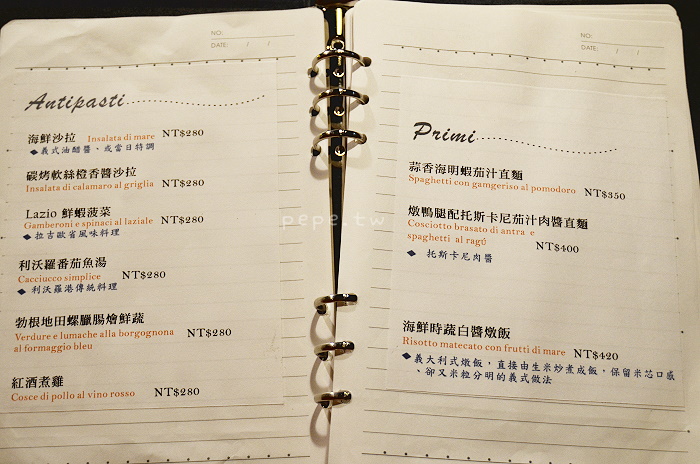 NO:
DATE: / /
Antipasti
海鮮沙拉 Insalata di mare NT$280
◆義式油醋醬、或當日特調
碳烤軟絲橙香醬沙拉
Insalata di calamaro al griglia NT$280
Lazio 鮮蝦菠菜
Gamberoni e spinaci al laziale NT$280
◆拉吉歐省風味料理
利沃羅番茄魚湯
Cacciucco simplice NT$280
◆利沃羅港傳統料理
勃根地田螺臘腸燴鮮蔬
Verdure e lumache alla borgognona NT$280
al formaggio bleu
紅酒煮雞
Cosce di pollo al vino rosso NT$280
pepe.tw
NO:
DATE: / /
Primi
蒜香海明蝦茄汁直麵
Spaghetti con gamgeriso al pomodoro NT$350
燉鴨腿配托斯卡尼茄汁肉醬直麵
Cosciotto brasato di antra e
spaghetti al ragú NT$400
◆ 托斯卡尼肉醬
海鮮時蔬白醬燉飯
Risotto matecato con frutti di mare NT$420
◆義大利式燉飯，直接由生米炒煮成飯，保留米芯口感
、卻又米粒分明的義式做法